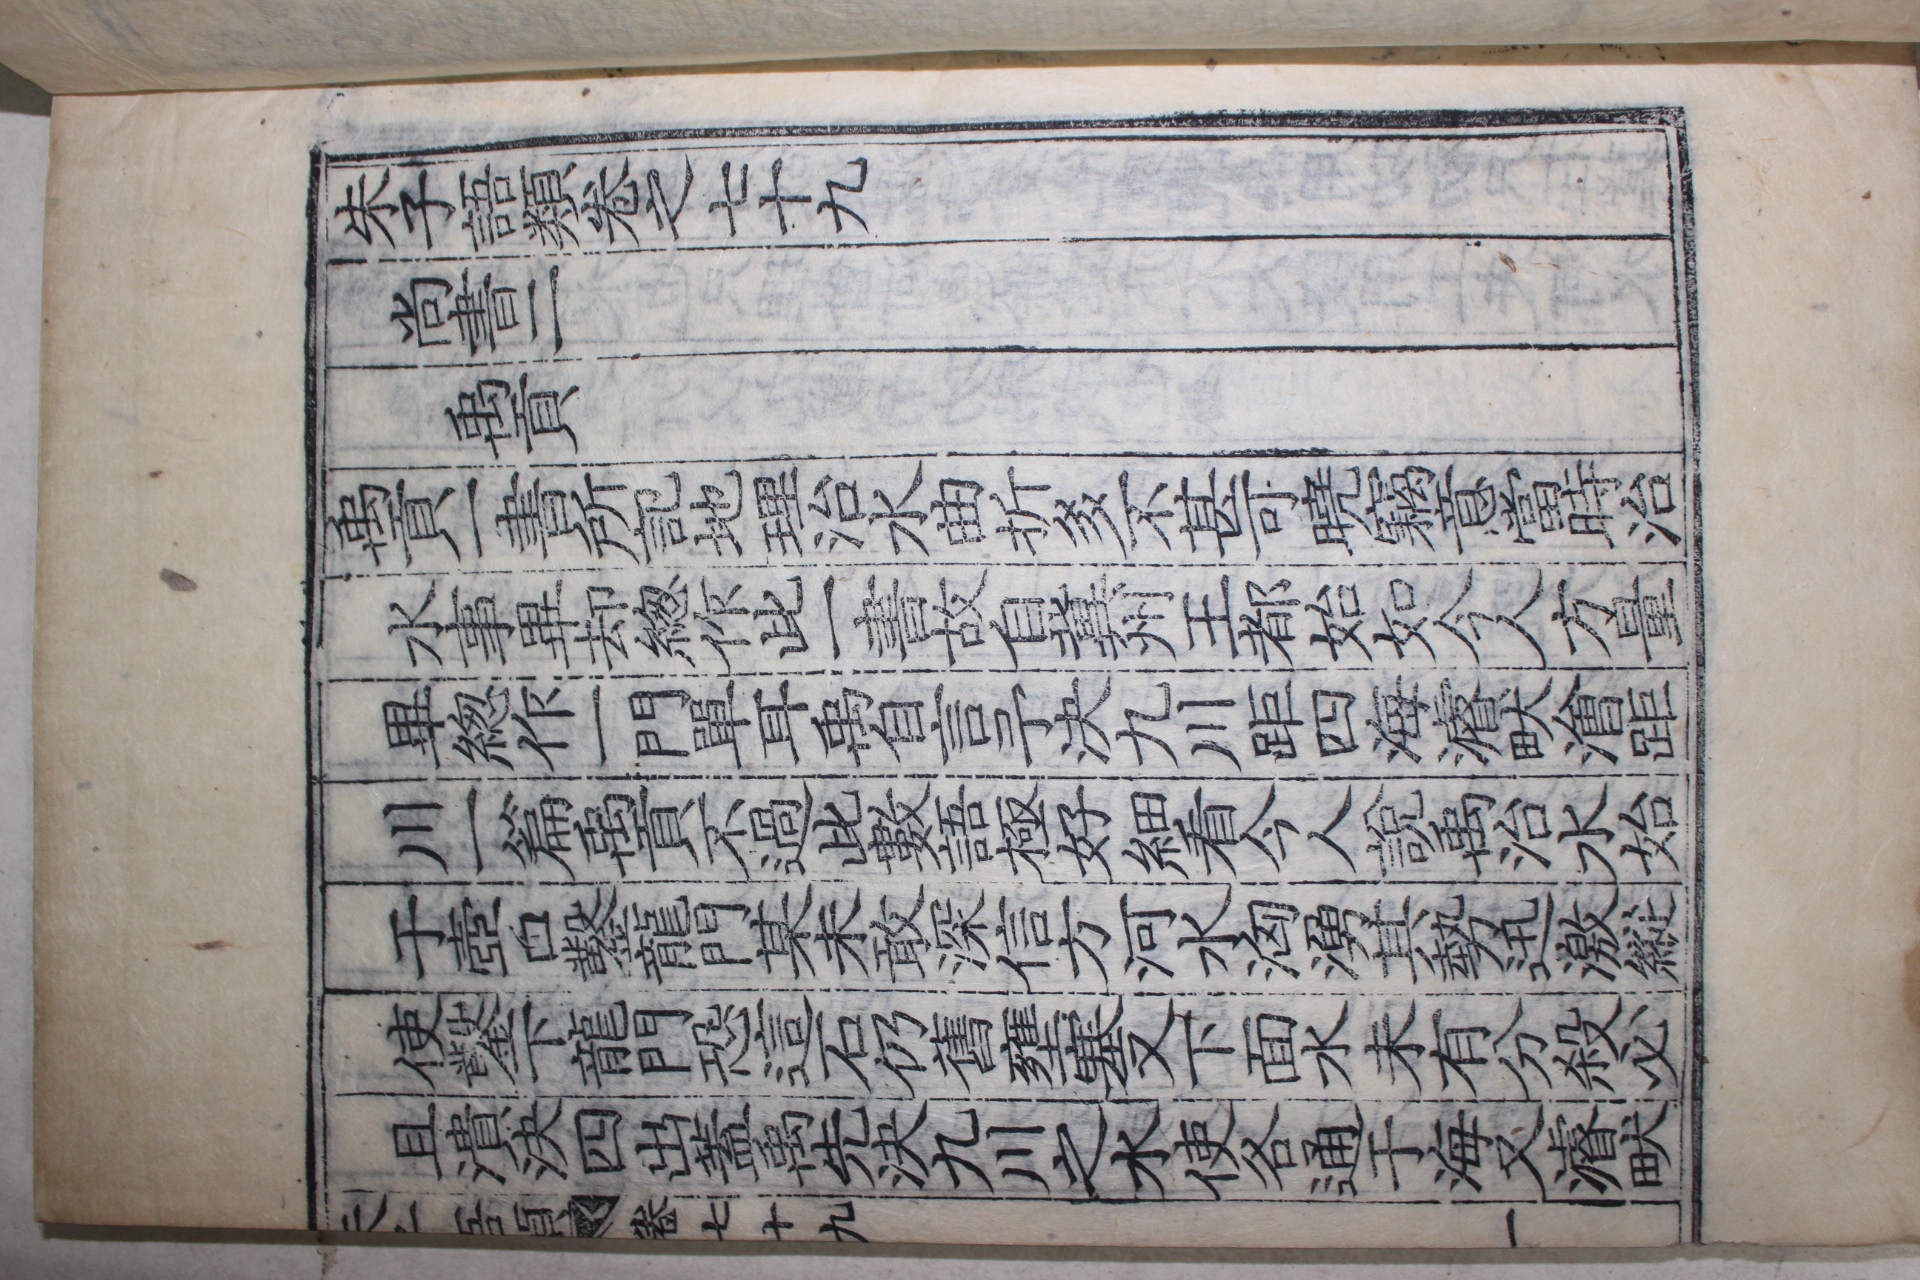 朱子語類卷之七十九
尚書二
禹貢
禹貢一書所記地理治水曲折多不甚可曉竊意當時治
水事畢却緫作此一書故自冀州王都始如今人方量
畢緫作一門單耳禹自言予決九川距四海濬畎澮距
川一篇禹貢不過此數語極好細看今人說禹治水始
于壺口鑿龍門某未敢深信方河水洶湧其勢迅激縱
使鑿下龍門恐這石仍舊壅塞又下面水未有分殺必
且潰決四出蓋禹先決九川之水使各通于海又濬畎
語類 卷七十九 一